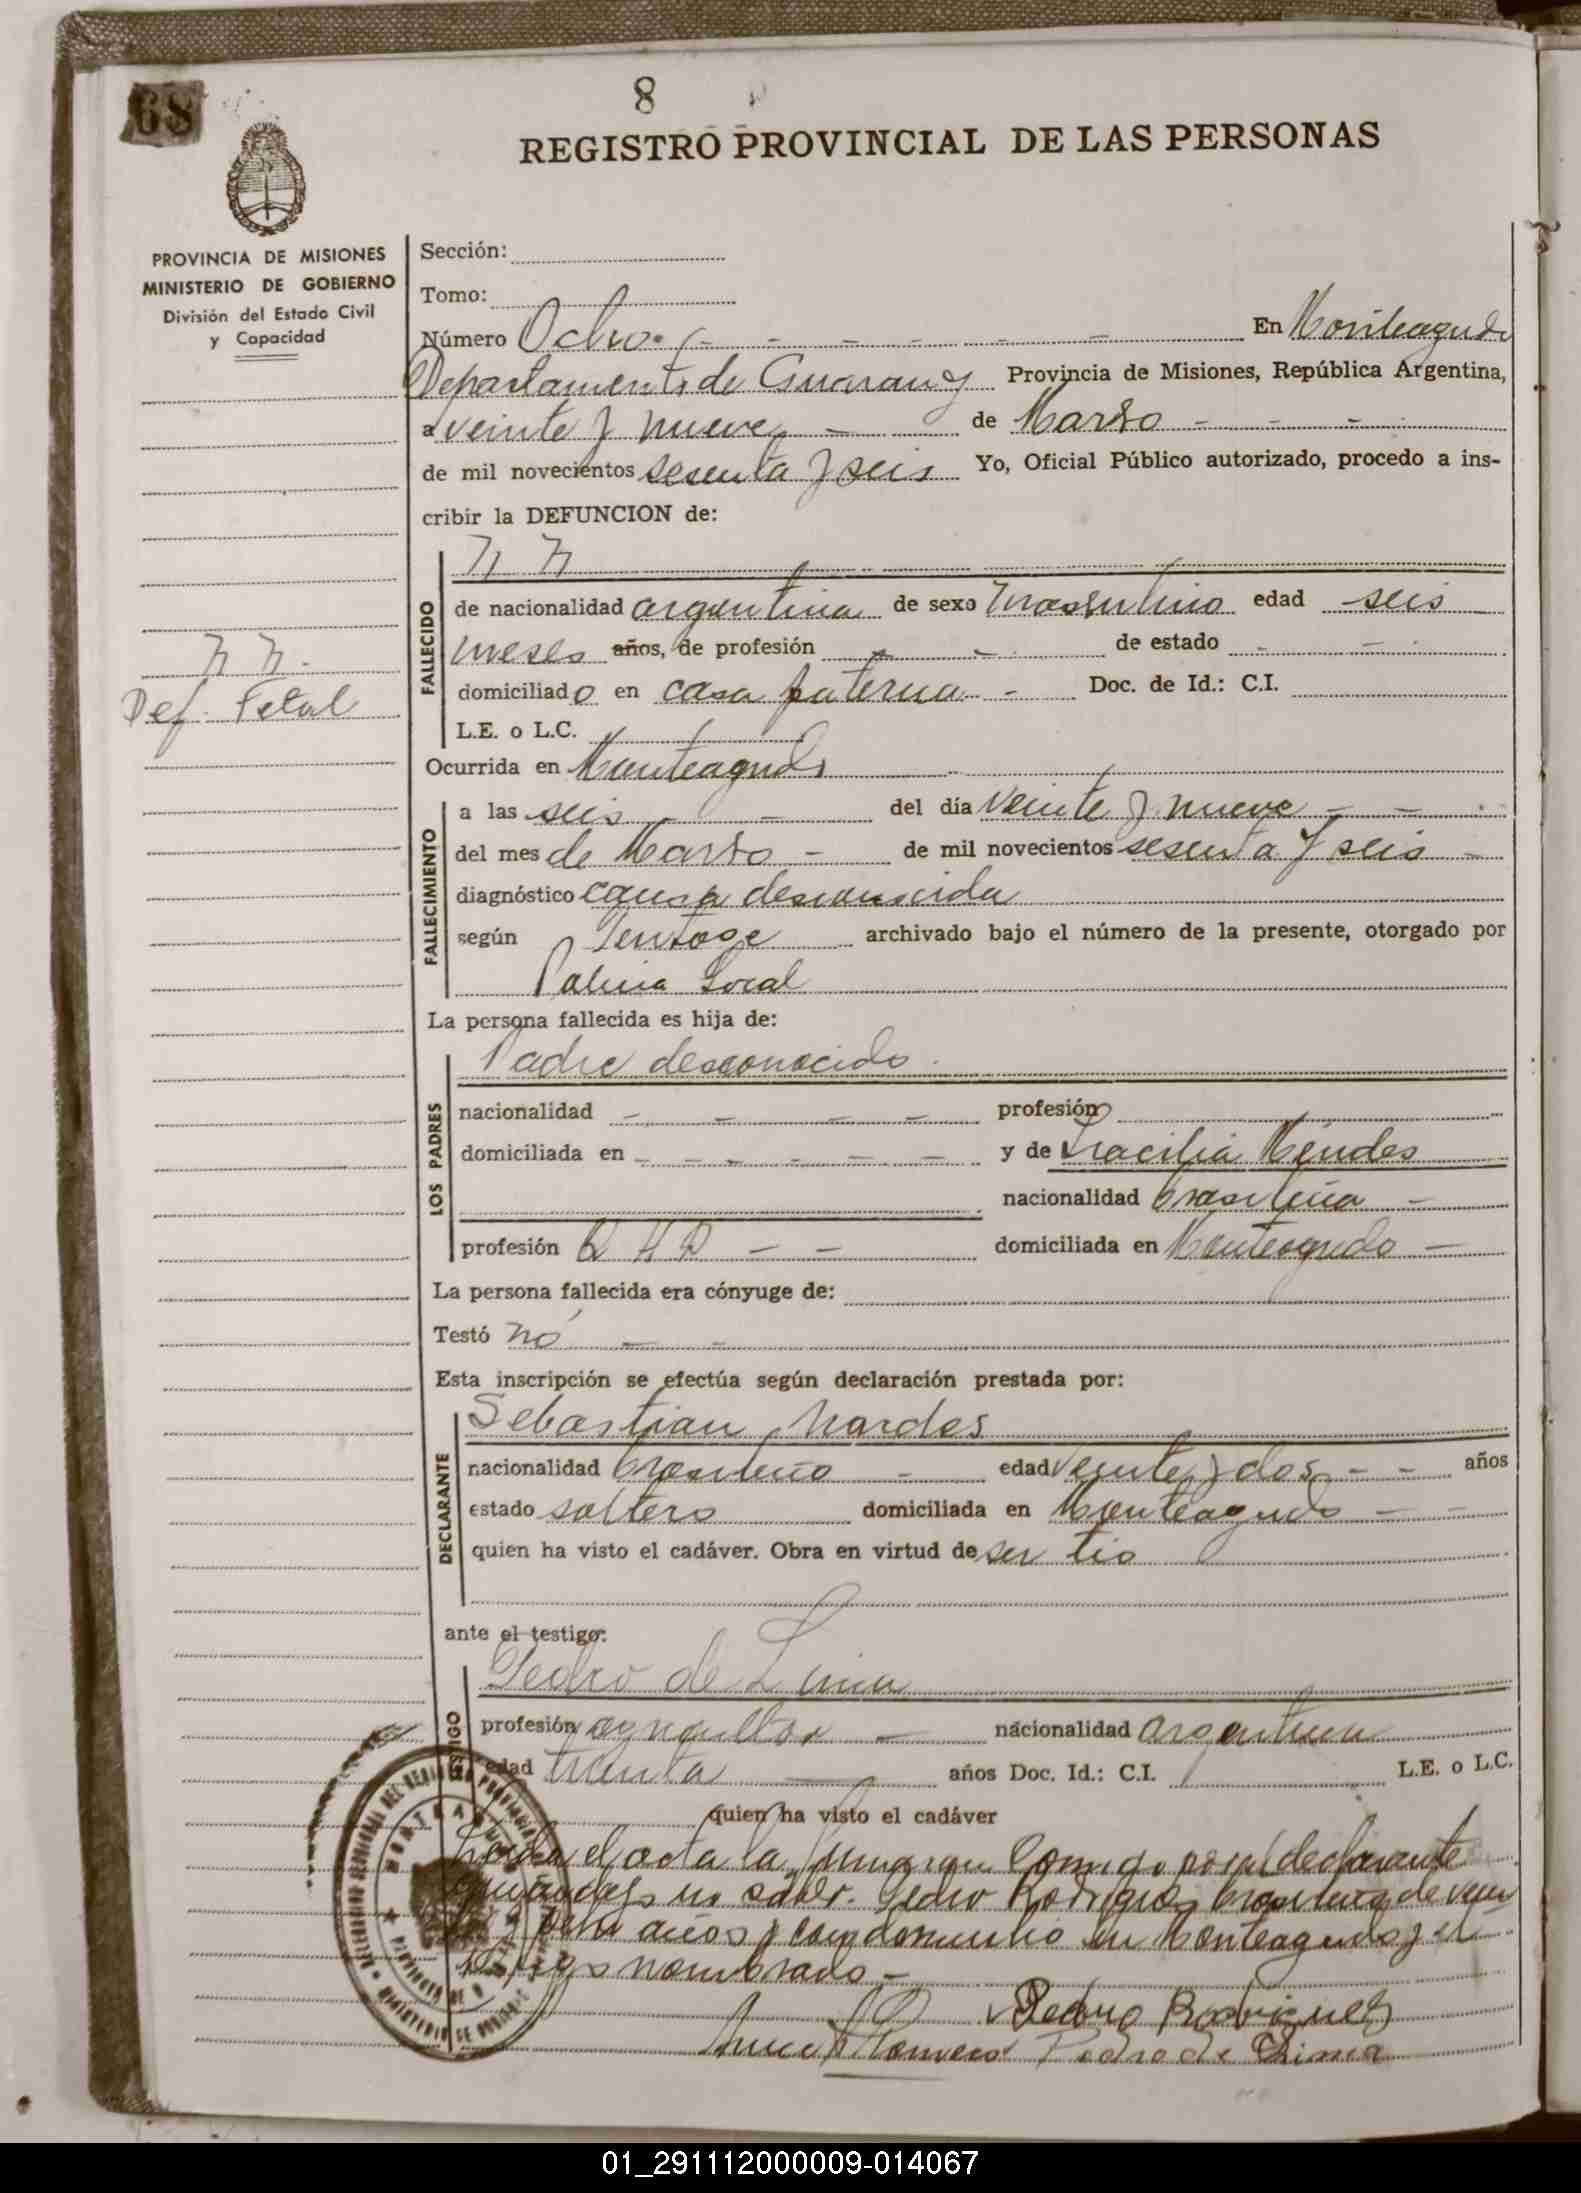 68
8
REGISTRO PROVINCIAL DE LAS PERSONAS
PROVINCIA DE MISIONES
MINISTERIO DE GOBIERNO
División del Estado Civil
y Capacidad
Sección:
Tomo:
Número Ocho.- En Monteagudo
Departamento de Guarany Provincia de Misiones, República Argentina,
a veinte y nueve de Marso
de mil novecientos sesenta y seis Yo, Oficial Público autorizado, procedo a ins-
cribir la DEFUNCION de:
N N
FALLECIDO
de nacionalidad argentina de sexo masculino edad seis
meses años, de profesión - de estado -
N N.
domiciliado en casa paterna - Doc. de Id.: C.I.
Def. Fetal
L.E. o L.C.
Ocurrida en Monteagudo
FALLECIMIENTO
a las seis del día veinte y nueve
del mes de Marso de mil novecientos sesenta y seis
diagnóstico causa desconocida
según archivado bajo el número de la presente, otorgado por
Local
La persona fallecida es hija de:
LOS PADRES
Padre desconocido.
nacionalidad - - - - profesión
domiciliada en - - - - - y de Mendes
nacionalidad brasileña -
profesión Q H D - - domiciliada en Monteagudo -
La persona fallecida era cónyuge de:
Testó nó - -
Esta inscripción se efectúa según declaración prestada por:
DECLARANTE
Sebastian Nardes
nacionalidad brasileño - edad veinte y dos - - años
estado soltero domiciliada en Monteagudo - -
quien ha visto el cadáver. Obra en virtud de ser tio
ante el testigo:
Pedro de Lima
profesión agricultor - nacionalidad argentina
edad treinta años Doc. Id.: C.I. L.E. o L.C.
quien ha visto el cadáver
Leida el acta la firman Comigo por el declarante
no saber. Pedro Rodrigues brasileño de vein
te y ocho años y con domicilio en Monteagudo y el
testigo nombrado -
Pedro Rodriguez
Romero Pedro de Lima
01_291112000009-014067